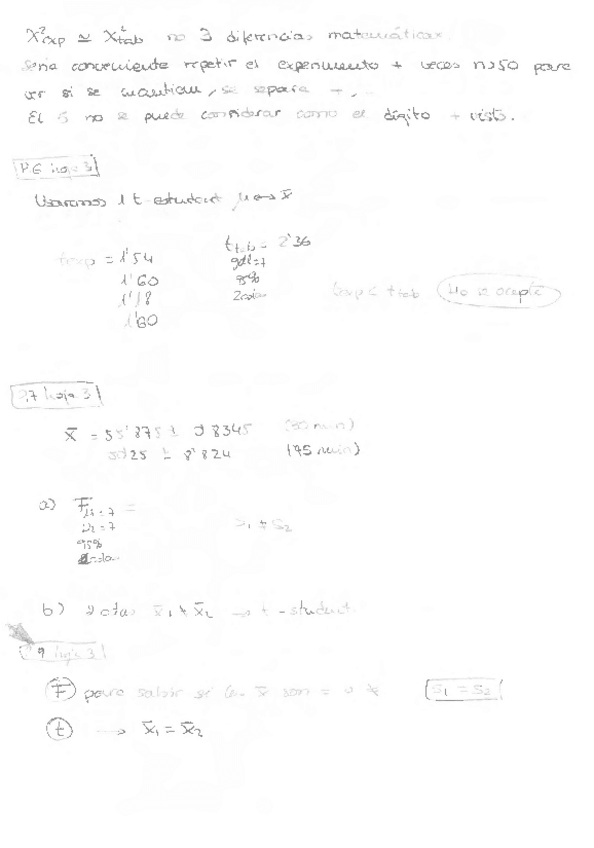 X²exp ≃ X²tab no ∃ diferencias matemáticas
Sería conveniente repetir el experimento + veces n>50 para
ver si se mantiene, se separa +, ..
El 5 no se puede considerar como el dígito + visto.
P.6 hoja 3
Usaremos 1 t-student μ ↔ x̄
texp = 1'54
1'60
1'18
1'60
ttab = 2'36
gdl = 7
95%
2 colas
texp < ttab Ho se acepta
P.7 hoja 3
x̄ = 55'875 ± 8345 (30 min)
25 ± 8'824 (45 min)
a) F =
ν1 = 7
ν2 = 7
95%
colas
S1 ≠ S2
b) 2 colas x̄1 ≠ x̄2 → t-student
9 hoja 3
F para saber si las S son = o ≠ S1 = S2
t → x̄1 = x̄2